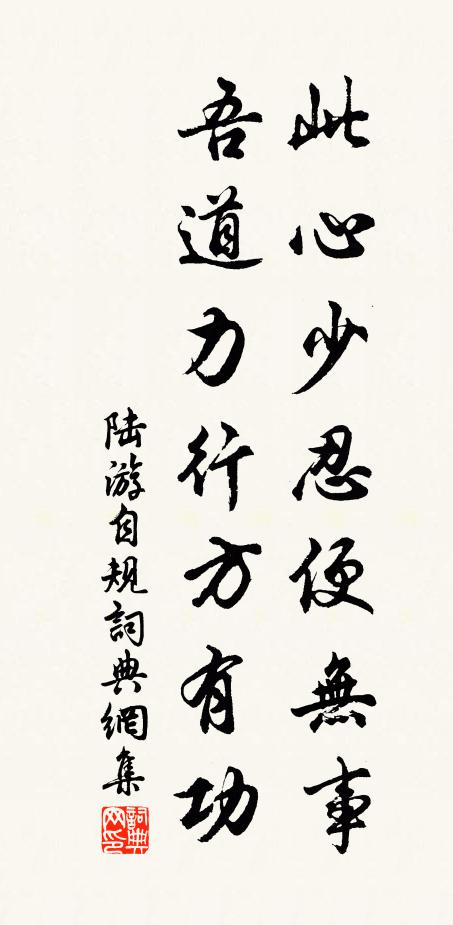 此心少忍便無事
吾道力行方有功
陆游自规詞典網集
詞典网印